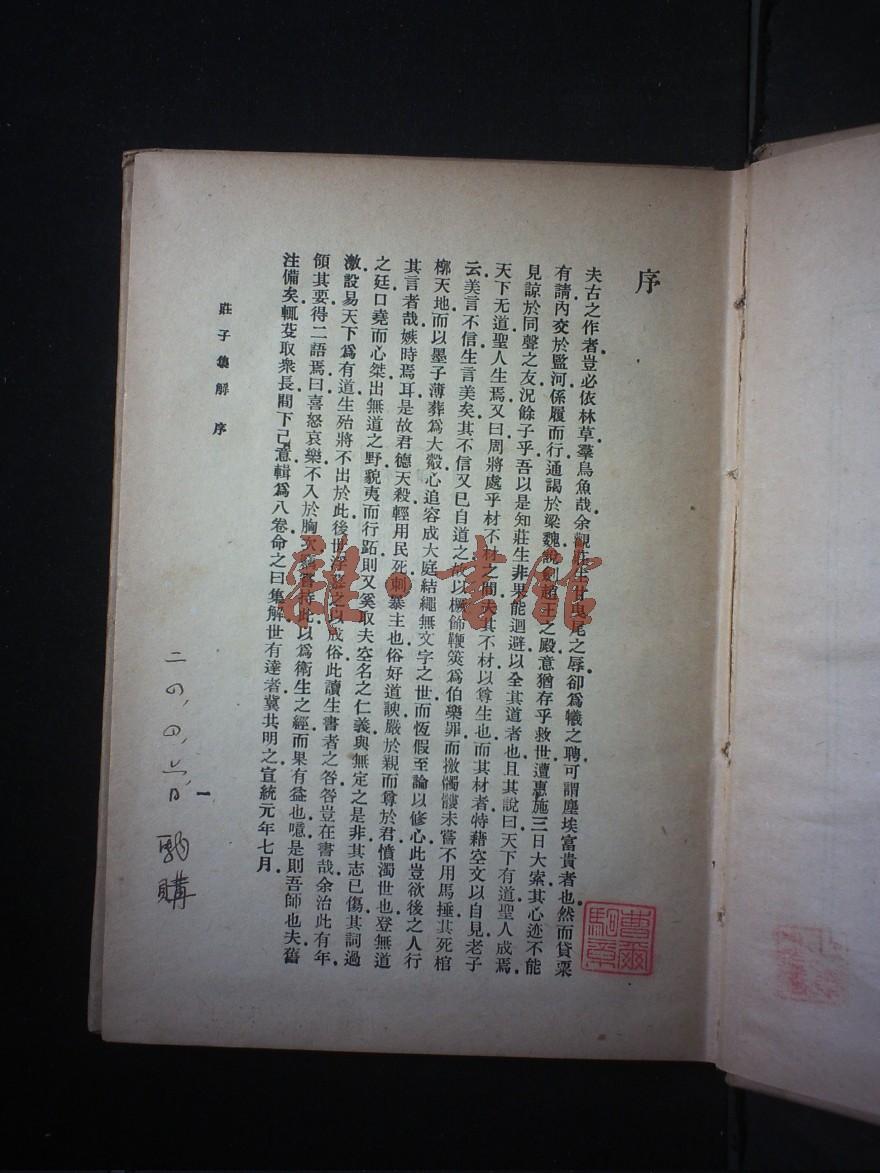 序
夫古之作者豈必依林草羣鳥魚哉余觀莊生甘曳尾之辱卻爲犧之聘可謂塵埃富貴者也然而貸粟
有請內交於監河係履而行通謁於梁魏說劍趙王之殿意猶存乎救世遭惠施三日大索其心迹不能
見諒於同聲之友況餘子乎吾以是知莊生非果能迴避以全其道者也且其說曰天下有道聖人成焉
天下无道聖人生焉又曰周將處乎材不材之間夫其不材以尊生也而其材者特藉空文以自見老子
云美言不信生言美矣其不信又已自道之故以橛飾鞭筴爲伯樂罪而撽髑髏未嘗不用馬捶其死棺
槨天地而以墨子薄葬爲大觳心追容成大庭結繩無文字之世而恆假至論以修心此豈欲後之人行
其言者哉嫉時焉耳是故君德天殺輕用民死刺暴主也俗好道諛嚴於親而尊於君憤濁世也登無道
之廷口堯而心桀出無道之野貌夷而行跖則又奚取夫空名之仁義與無定之是非其志已傷其詞過
激設易天下爲有道生殆將不出於此後世浮慕之以成俗此讀生書者之咎咎豈在書哉余治此有年
領其要得二語焉曰喜怒哀樂不入於胸次竊嘗持此以爲衛生之經而果有益也噫是則吾師也夫舊
注備矣輒芟取衆長間下己意輯爲八卷命之曰集解世有達者冀共明之宣統元年七月
莊子集解 序
一
駒購
曹爾駒章
雜·書館